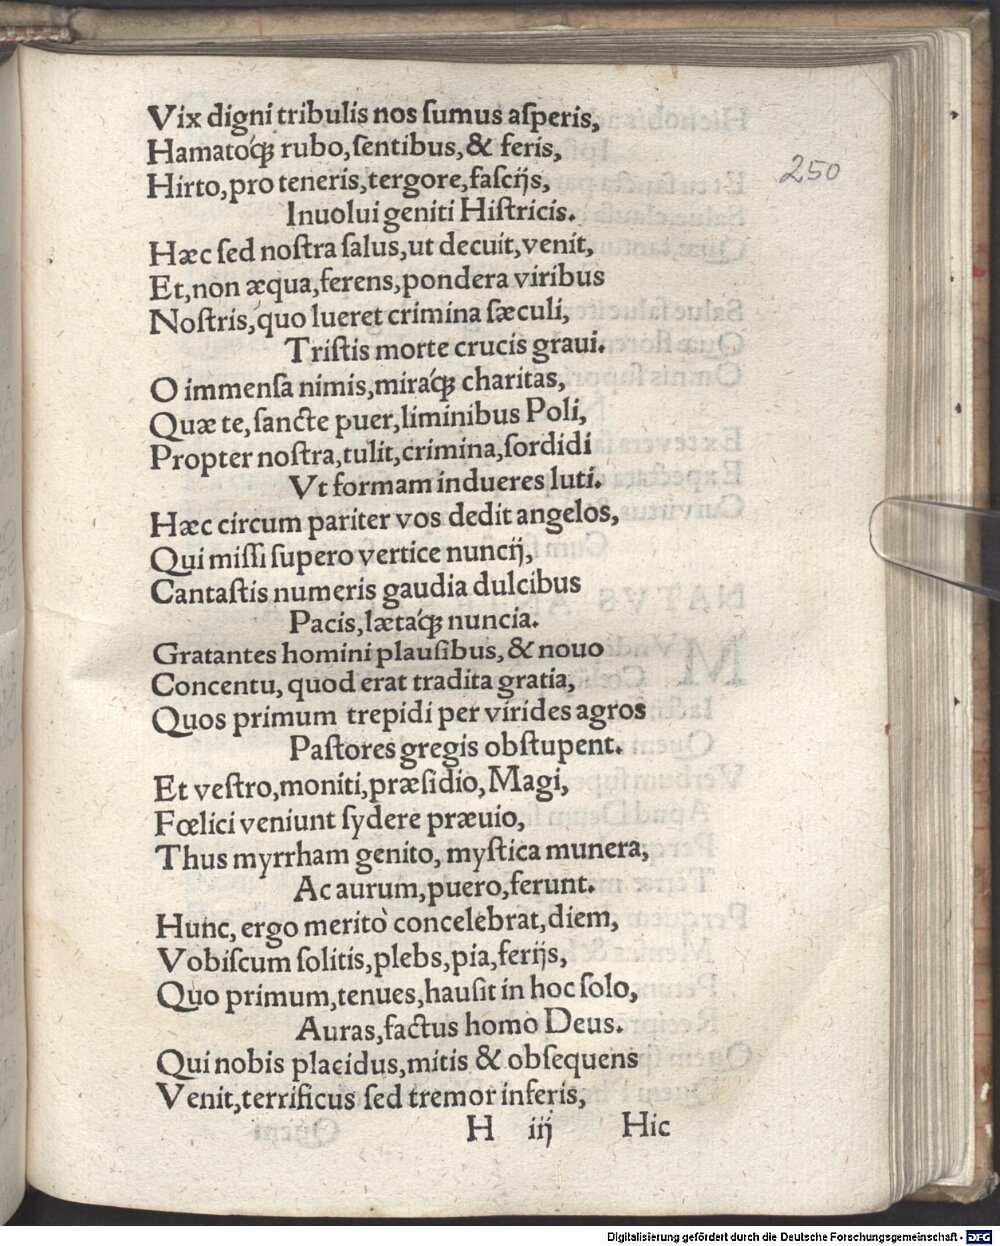 Vix digni tribulis nos ſumus aſperis,
Hamatoq́ꝫ rubo, ſentibus, & feris,
Hirto, pro teneris, tergore, faſcijs,
Inuolui geniti Hiſtricis.
Hæc ſed noſtra ſalus, ut decuit, venit,
Et, non æqua, ferens, pondera viribus
Noſtris, quo lueret crimina ſæculi,
Triſtis morte crucis graui.
O immenſa nimis, miraq́ꝫ charitas,
Quæ te, ſancte puer, liminibus Poli,
Propter noſtra, tulit, crimina, ſordidi
Vt formam indueres luti.
Hæc circum pariter vos dedit angelos,
Qui miſſi ſupero vertice nuncij,
Cantaſtis numeris gaudia dulcibus
Pacis, lætaq́ꝫ nuncia.
Gratantes homini plauſibus, & nouo
Concentu, quod erat tradita gratia,
Quos primum trepidi per virides agros
Paſtores gregis obſtupent.
Et veſtro, moniti, præſidio, Magi,
Fœlici veniunt ſydere præuio,
Thus myrrham genito, myſtica munera,
Ac aurum, puero, ferunt.
Hunc, ergo meritò concelebrat, diem,
Vobiſcum ſolitis, plebs, pia, ferijs,
Quo primum, tenues, hauſit in hoc ſolo,
Auras, factus homo Deus.
Qui nobis placidus, mitis & obſequens
Venit, terrificus ſed tremor inferis,
H iij Hic
250
Digitalisierung gefördert durch die Deutsche Forschungsgemeinschaft - DFG